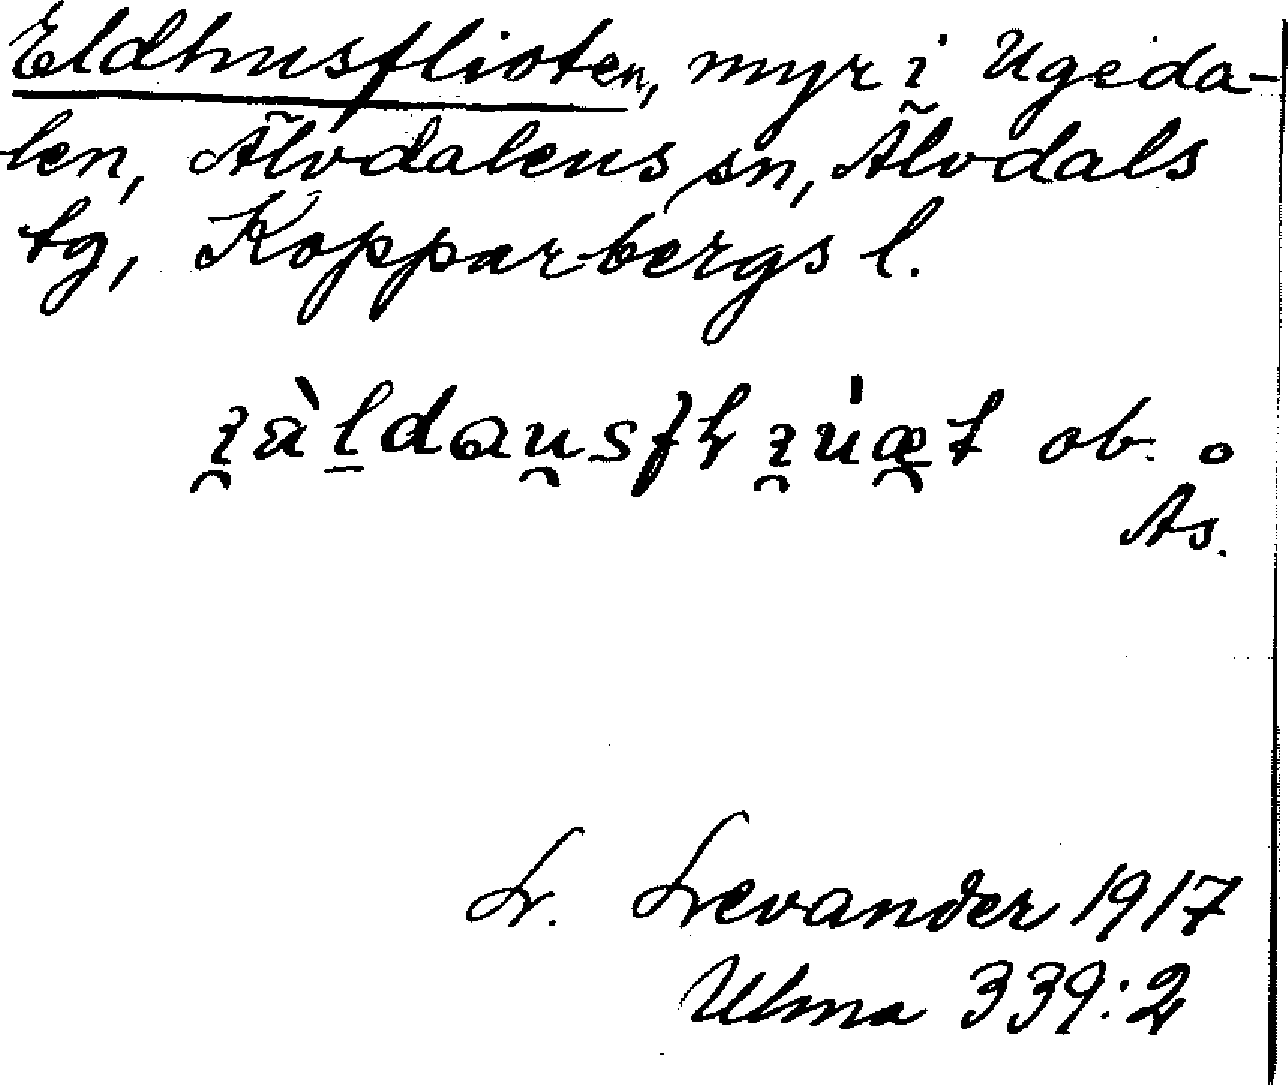 Eldhusflioten, myr i Ugeda-
len, Älvdalens sn, Älvdals
tg, Kopparbergs l.
ob. o
Ås.
L. Levander 1917
Ulma 339:2